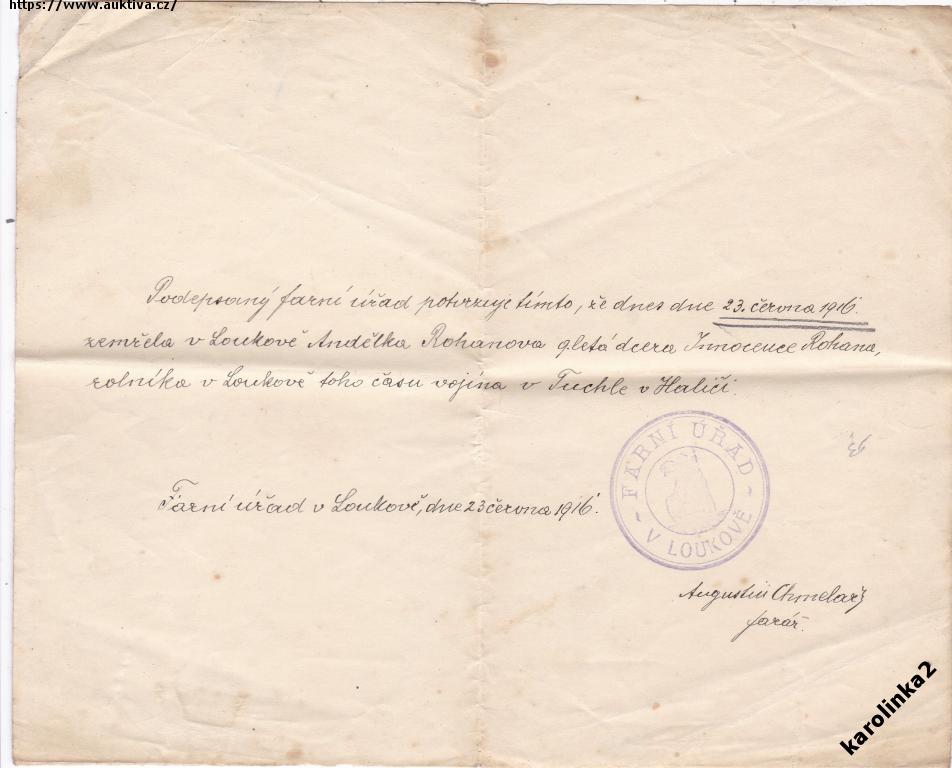 https://www.auktiva.cz/
Podepsaný farní úřad potvrzuje tímto, že dnes dne 23. června 1916.
zemřela v Loukově Andělka Rohanova 9letá dcera Innocence Rohana,
rolníka v Loukově toho času vojína v Tuchle v Haliči.
Farní úřad v Loukově, dne 23 června 1916.
FARNÍ ÚŘAD
V LOUKOVĚ
Augustin Chmelař
farář.
karolinka2